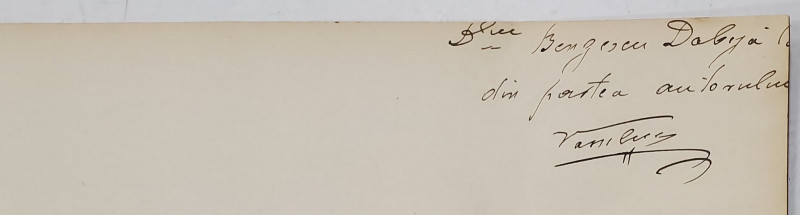 Dlui Bengescu Dabija
din partea autorului